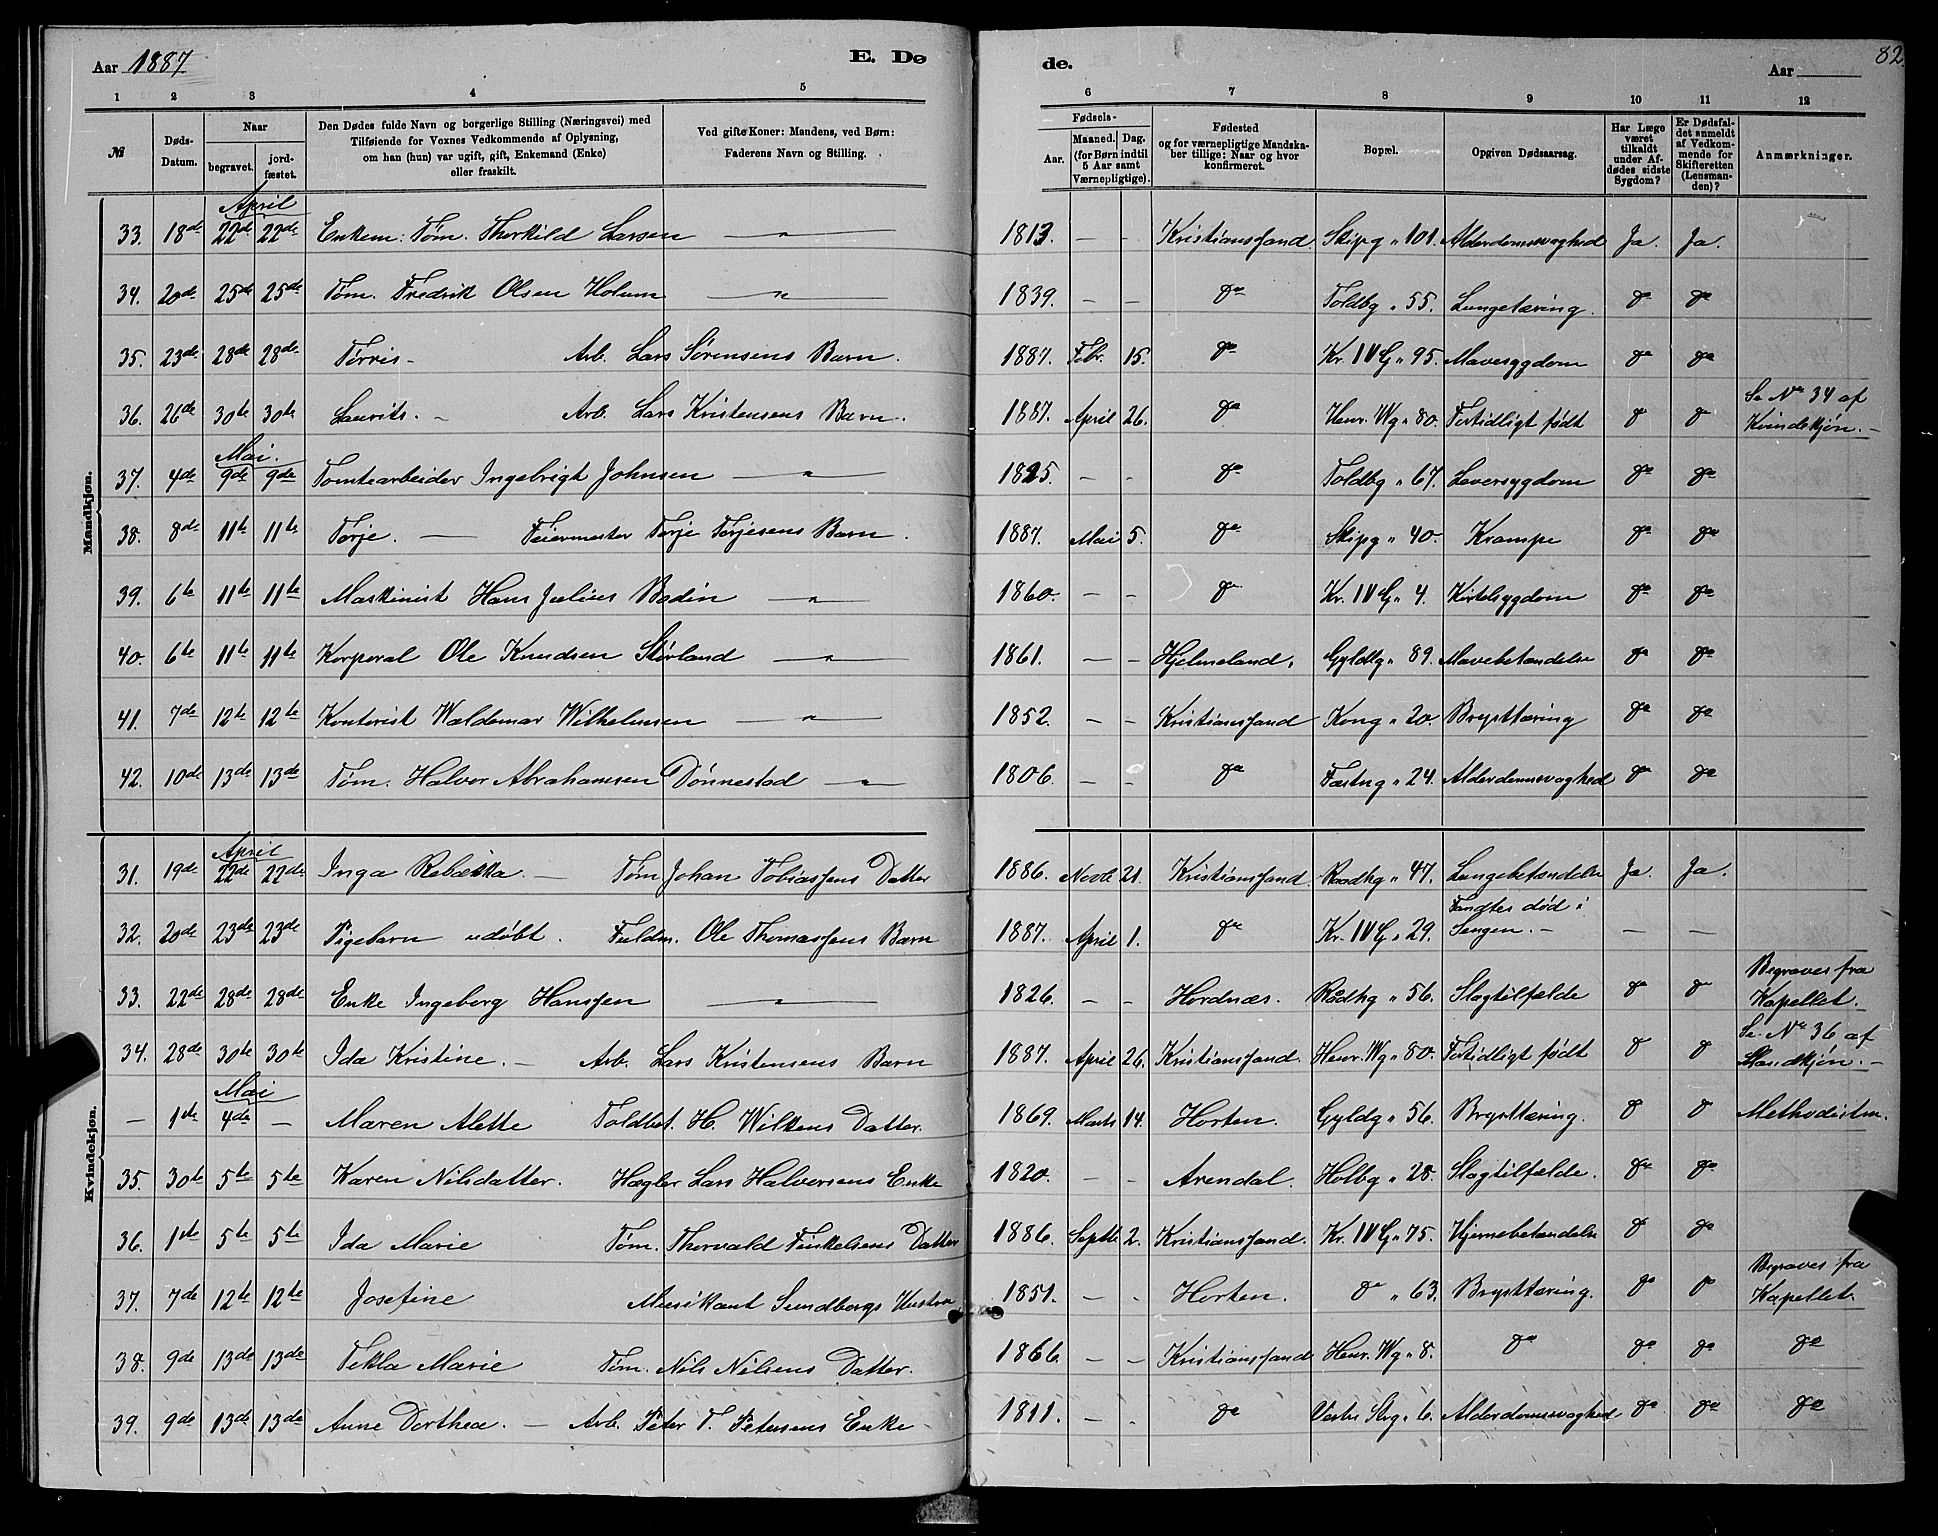 Aar 1887 E. Dø de. Aar 82.
1 2 3 4 5 6 7 8 9 10 11 12
№
Døds-Datum.
Naar
begravet. jord-fæstet.
Den Dødes fulde Navn og borgerlige Stilling (Næringsvei) med
Tilføiende for Voxnes Vedkommende af Oplysning,
om han (hun) var ugift, gift, Enkemand (Enke)
eller fraskilt.
Ved gifte Koner: Mandens, ved Børn:
Faderens Navn og Stilling.
Fødsels-
Aar. Maaned. Dag.
(for Børn indtil
5 Aar samt
Værnepligtige).
Fødested
og for værnepligtige Mandska-
ber tillige: Naar og hvor
konfirmeret.
Bopæl.
Opgiven Dødsaarsag.
Har Læge
været
tilkaldt
under Af-
dødes sidste
Sygdom?
Er Dødsfal-
det anmeldt
af Vedkom-
mende for
Skifteretten
(Lensman-
den)?
Anmærkninger.
Mandkjøn.
April
33. 18de 22de 22de Enkem. Tøm. Therkild Larsen — " — 1813. — — Kristianssand Skipg " 101. Alderdomssvaghed Ja. Ja.
34. 20de 25de 25de Tøm. Fredrik Olsen Holum — " — 1839. — — do Toldbg " 55. Lungetæring. do do
35. 23de 28de 28de Tørris — Arb. Lars Sørensens Barn. 1887. Febr. 15. do Kr. IV G " 95. Mavesygdom do do
36. 26de 30te 30te Laurits. — Arb. Lars Kristensens Barn. 1887. April 26. do Henr. Wg " 80. Fortidligt født do do Se No 34 af Kvindekjøn. —
Mai.
37. 4de 9de 9de Tomtearbeider Ingebrigt Johnsen — " — 1825. — — do Toldbg " 67. Leversygdom do do
38. 8de 11te 11te Tørje. — Feiermester Terje Terjesens Barn. 1887. Mai 5. do Skipg " 40. Krampe do do
39. 6te 11te 11te Maskinist Hans Julius Bodin — " — 1860. — — do Kr. IV G " 4. Kirtelsygdom do do
40. 6te 11te 11te Korporal Ole Knudsen Størland — " — 1861. — — Hjelmeland. Gyldbg " 89. Mavebetændelse do do
41. 7de 12te 12te Kontorist Waldemar Wilhelmsen — " — 1852. — — Kristianssand Kong " 20. Brysttæring do do
42. 10de 13de 13de Tøm. Halvor Abrahamsen Dønnestad — " — 1806. — — do Fæstng " 24. Alderdomssvaghed do do
Kvindekjøn.
April
31. 19de 22de 22de Inga Rebekka. — Tøm. Johan Tobiassens Datter 1886. Novb 21. Kristianssand. Raadhg " 47. Lungebetændelse Ja. Ja.
32. 20de 23de 23de Pigebarn udøbt. Fuldm. Ole Thomassens Barn 1887. April 1. do Kr. IV G " 29. Fandtes død i Sengen. — — —
33. 22de 28de 28de Enke Ingeborg Hanssen — " — 1826. — — Hordnæs. Radhg " 56. Slagtilfælde do do Begraves fra Kapellet.
34. 28de 30te 30te Ida Kristine. — Arb. Lars Kristensens Barn 1887. April 26. Kristianssand. Henr. Wg " 80. Fortidligt født do do Se No 36 af Mandkjøn. —
Mai
— 1ste 4de — Maren Alette Toldbet. H. Wilkens Datter. 1869. Marts 14. Horten. Gyldg " 56. Brysttæring. do do Methodistm.
35. 30te 5te 5te Karen Nilsdatter. Hægler Lars Halvorsens Enke 1820. — — Arendal. Holbg " 28. Slagtilfælde. do do
36. 1ste 5te 5te Ida Marie Tøm. Thorvald Finkelsens Datter 1886. Septb. 2. Kristianssand. Kr. IV G " 75. Hjernebetændelse do do
37. 7de 12te 12te Josefine Musikant Sundbergs Hustru 1851. — — Horten. do " 63. Brysttæring. do do Begraves fra Kapellet.
38. 9de 13de 13de Tekla Marie Tøm. Nils Nilsens Datter. 1866. — — Kristianssand Henr. Wg " 8. do do do do
39. 9de 13de 13de Anne Dorthea. — Arb. Peter T. Petersens Enke 1811. — — do Vester Stvg " 6. Alderdomssvaghed do do do